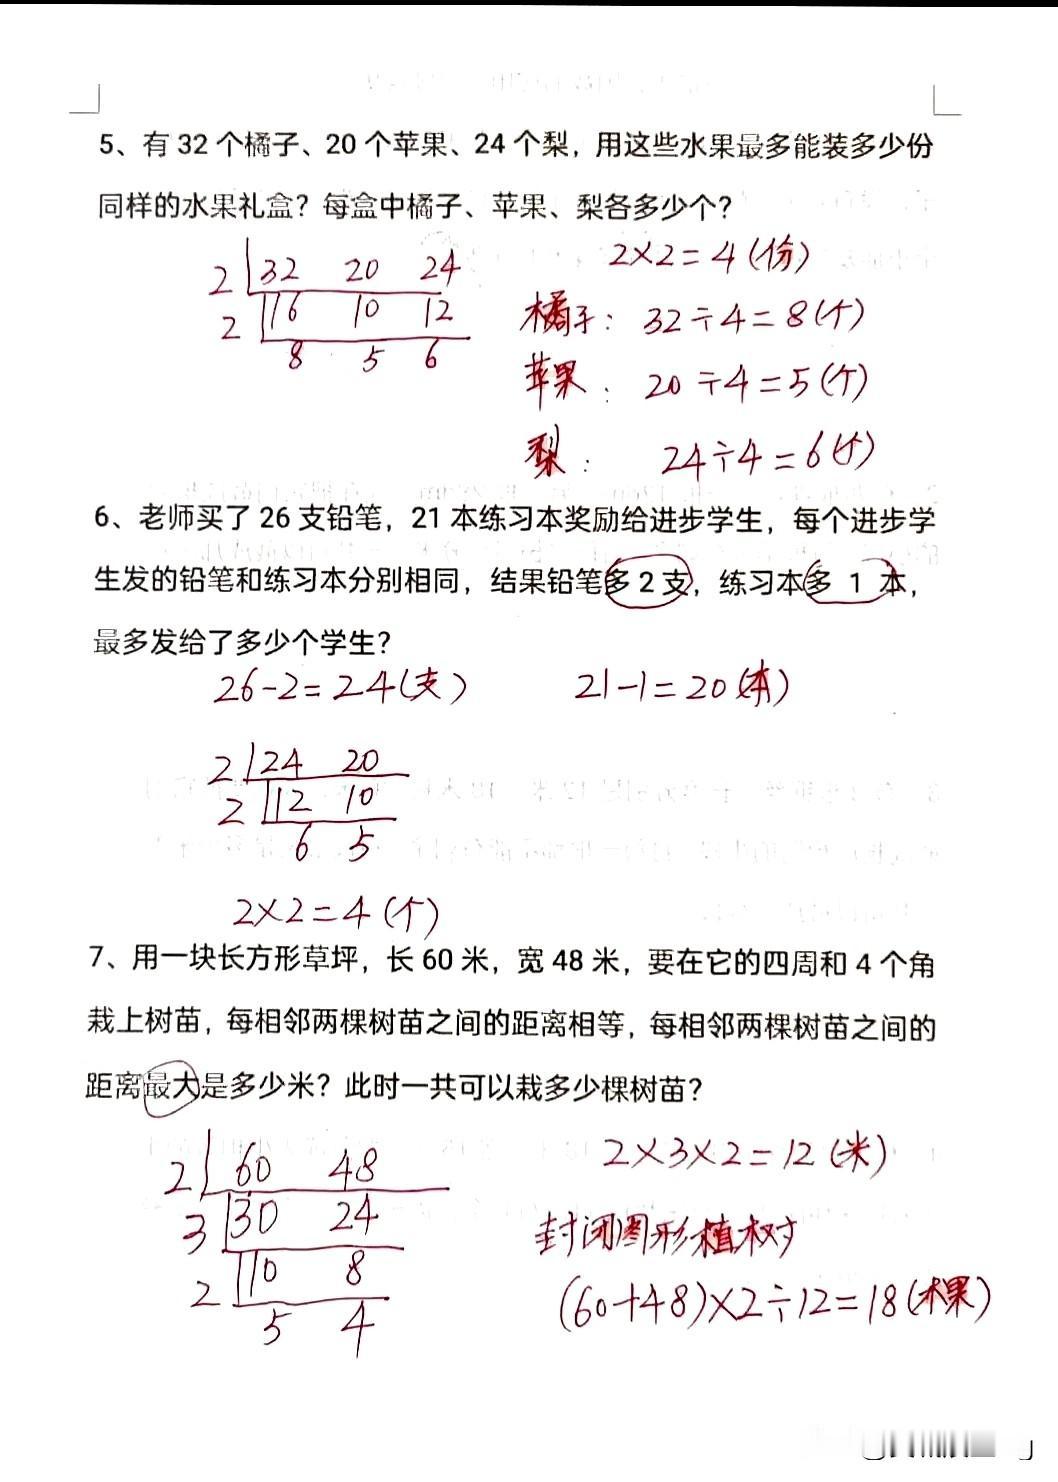 5、有 32 个橘子、20 个苹果、24 个梨，用这些水果最多能装多少份
同样的水果礼盒？每盒中橘子、苹果、梨各多少个？
2 32 20 24
2 16 10 12
8 5 6
2×2=4(份)
橘子：32÷4=8(个)
苹果：20÷4=5(个)
梨：24÷4=6(个)
6、老师买了 26 支铅笔，21 本练习本奖励给进步学生，每个进步学
生发的铅笔和练习本分别相同，结果铅笔多 2 支，练习本多 1 本，
最多发给了多少个学生？
26-2=24(支) 21-1=20(本)
2 24 20
2 12 10
6 5
2×2=4(个)
7、用一块长方形草坪，长 60 米，宽 48 米，要在它的四周和 4 个角
栽上树苗，每相邻两棵树苗之间的距离相等，每相邻两棵树苗之间的
距离最大是多少米？此时一共可以栽多少棵树苗？
2 60 48
3 30 24
2 10 8
5 4
2×3×2=12(米)
封闭图形植树
(60+48)×2÷12=18(棵)